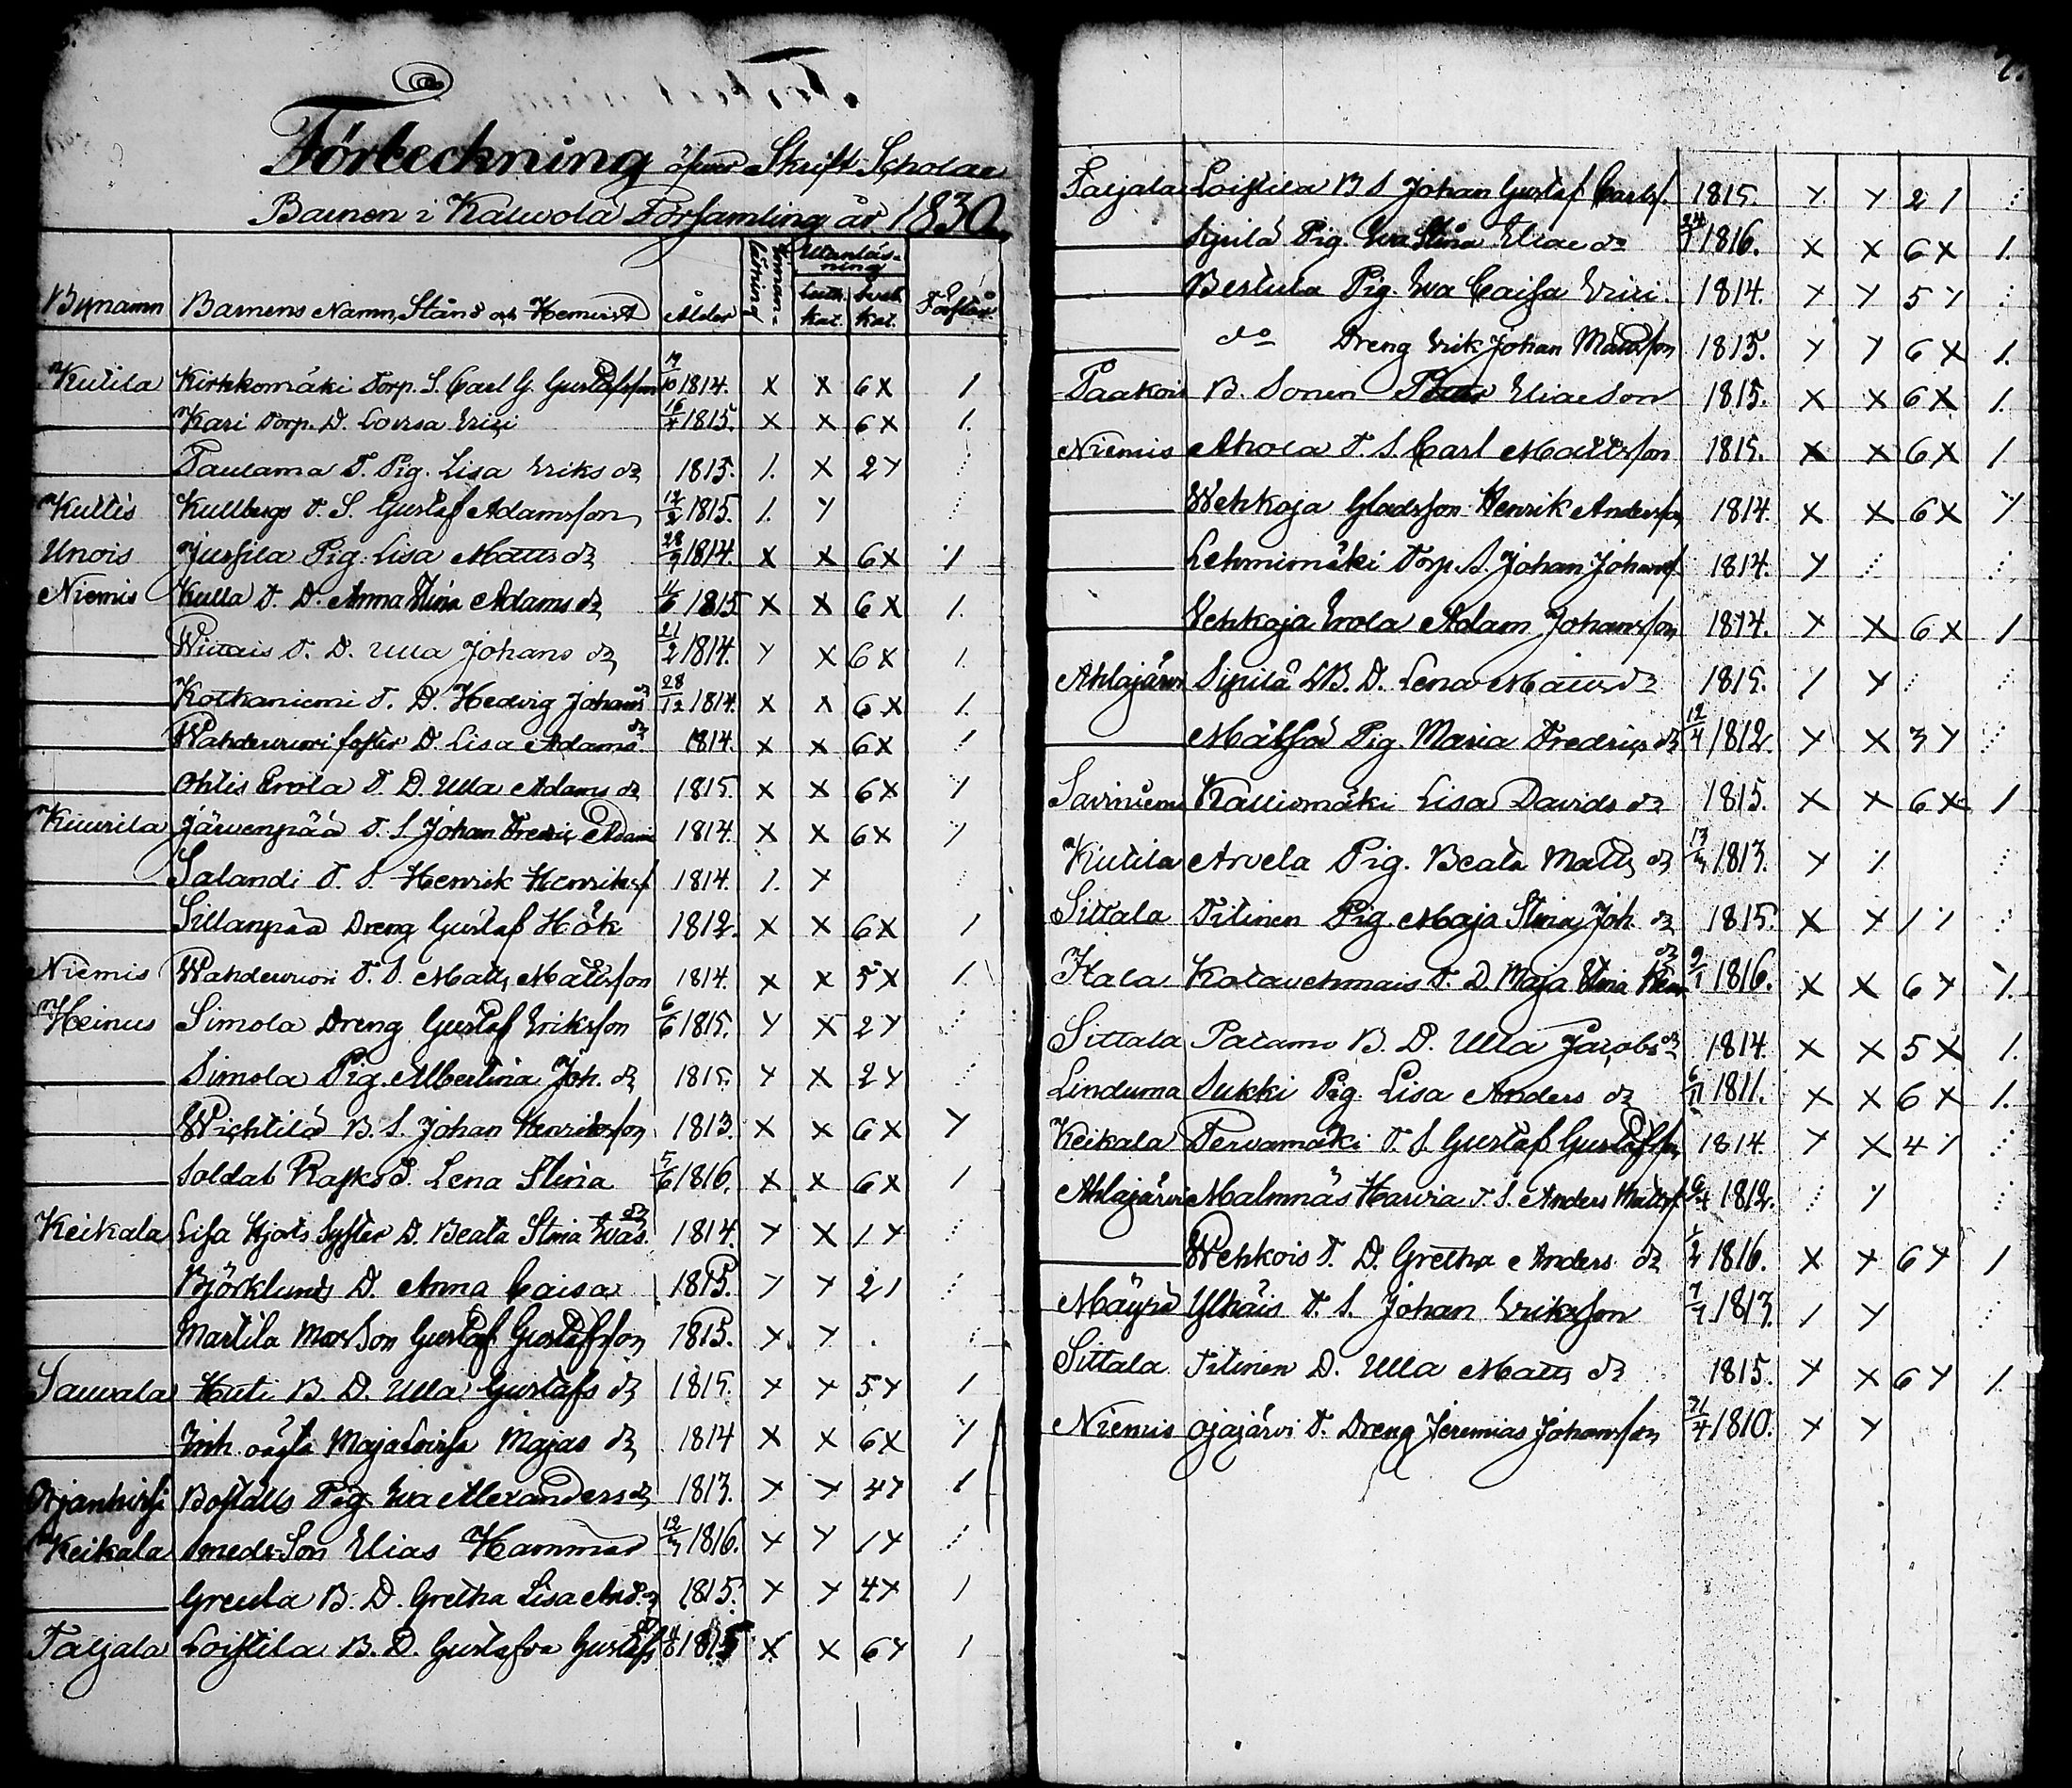 Förteckning öfver Skrift-Scholae
Barnen i Kalwola Församling år 1830.
Bynamn Barnens Namn, Stånd och Hemvist Ålder Innan-läsning Utanläs-ning Luth. Kat. Sveb. Kat. Förstånd
Kutila Kirkkomäki Torp. S. Carl G. Gustafsson 10 1814. x x 6x 1
Kari Torp. D. Lovisa Erici 16 1815. x x 6x 1.
Taulama T. Pig. Lisa Eriks dr 1815. 1. x 2 y
Kultis Kullbergs T. S. Gustaf Adamsson 12/2 1815. 1. y
Unois Jussila Pig. Lisa Matts dr 28/9 1814. x x 6x 1
Niemis Kulla T. D. Anna Stina Adams dr 11/6 1815 x x 6x 1.
Wittais T. D. Ulla Johans dr 21/2 1814. y x 6x 1.
Kotkaniemi T. D. Hedvig Johans dr 28/12 1814. x x 6x 1.
Wahdervuori foster D. Lisa Adams dr 1814. x x 6x 1
Ohlis Erola T. D. Ulla Adams dr 1815. x x 6x 1
Kiurila Järvenpää T. S. Johan Fredric Adams 1814. x x 6x 1
Salandi T. S. Henrik Henriksf 1814. 1. y
Sillanpää Dreng Gustaf Hök 1812. x x 6x 1
Niemis Wahdervuori T. S. Matts Mattsson 1814. x x 5x 1.
Heinus Simola Dreng Gustaf Eriksson 6/6 1815. y x 2 y
Simola Pig. Albertina Joh. dr 1815. y x 2 y
Wichtilä B. S. Johan Henriksson 1813. x x 6x y
Soldat Rasks D. Lena Stina 5/6 1816. x x 6x 1
Keikala Lisa Hjorts Syster D. Beata Stina Evas dr 1814. y x 1 y
Björklunds D. Anna Caisa 1815. y y 2 1
Martila Mor Son Gustaf Gustafsson 1815. y. y
Sauvala Huti B. D. Ulla Gustafs dr 1815. y y 5 y 1
Inh. Maja Lovisa Majas dr 1814 x x 6x 1
Orjanhirsi Boställs Pig. Eva Alexanders dr 1813. y y 4 y 1
Keikala Smeds Son Elias Hammar 12 1816. y y 1 y
Greula B. D. Gretha Lisa And. dr 1815. y y 4 y 1
Taljala Loistila B. D. Gustafva Gustafs 1815 x x 6 y 1
Taljala Loistila B S Johan Gustaf Carlsf. 1815. y y 2 1
Sipilä Pig. Eva Stina Eliae dr 24/1 1816. x x 6x 1.
Bertula Pig. Eva Caisa Erici. 1814. y y 5 y
do Dreng Erik Johan Mattsson 1815. y y 6x 1.
Paakois B. Sonen Elias Son 1815. x x 6x 1.
Niemis Ahola T. S. Carl Mattsson 1815. x x 6x 1
Wehkoja Henrik Andersson 1814. x x 6x y
Lehmimäki Torp. S. Johan Johansf 1814. y
Vehkoja Erola Adam Johansson 1814. y x 6x 1
Ahlajärvi Sipilä B. D. Lena Matts dr 1815. 1 y
Mälsä Pig. Maria Fredrics dr 12/4 1812. y x 3 y
Saviniemi Kalliomäki Lisa Davids dr 1815. x x 6x 1
Kutila Arvela Pig. Beata Matts dr 1813. y 1
Sittala Titinen Pig. Maja Stina Joh. dr 1815. x y 1 1
Kala Maja Stina dr 9/1 1816. x x 6 y 1.
Sittala Palamo B. D. Ulla Jacobs dr 1814. x x 5x 1.
Linduma Sukki Pig. Lisa Anders dr 6/11 1811. x x 6 x 1.
Keikala Tervamäki T. S. Gustaf Gustafsson 1814. y x 4 1
Ahlajärvi Malmnäs Harvia T. S. Anders Mattsf 1812. 1
Wehkois T. D. Gretha Anders dr 1/2 1816. x y 6 y 1
Mäyrä Ylhäis T. S. Johan Eriksson 7 1813. 1 y
Sittala Titinen D. Ulla Matts dr 1815. y x 6 y 1.
Niemis Ojajärvi T. Dreng Jeremias Johansson 1810. y y